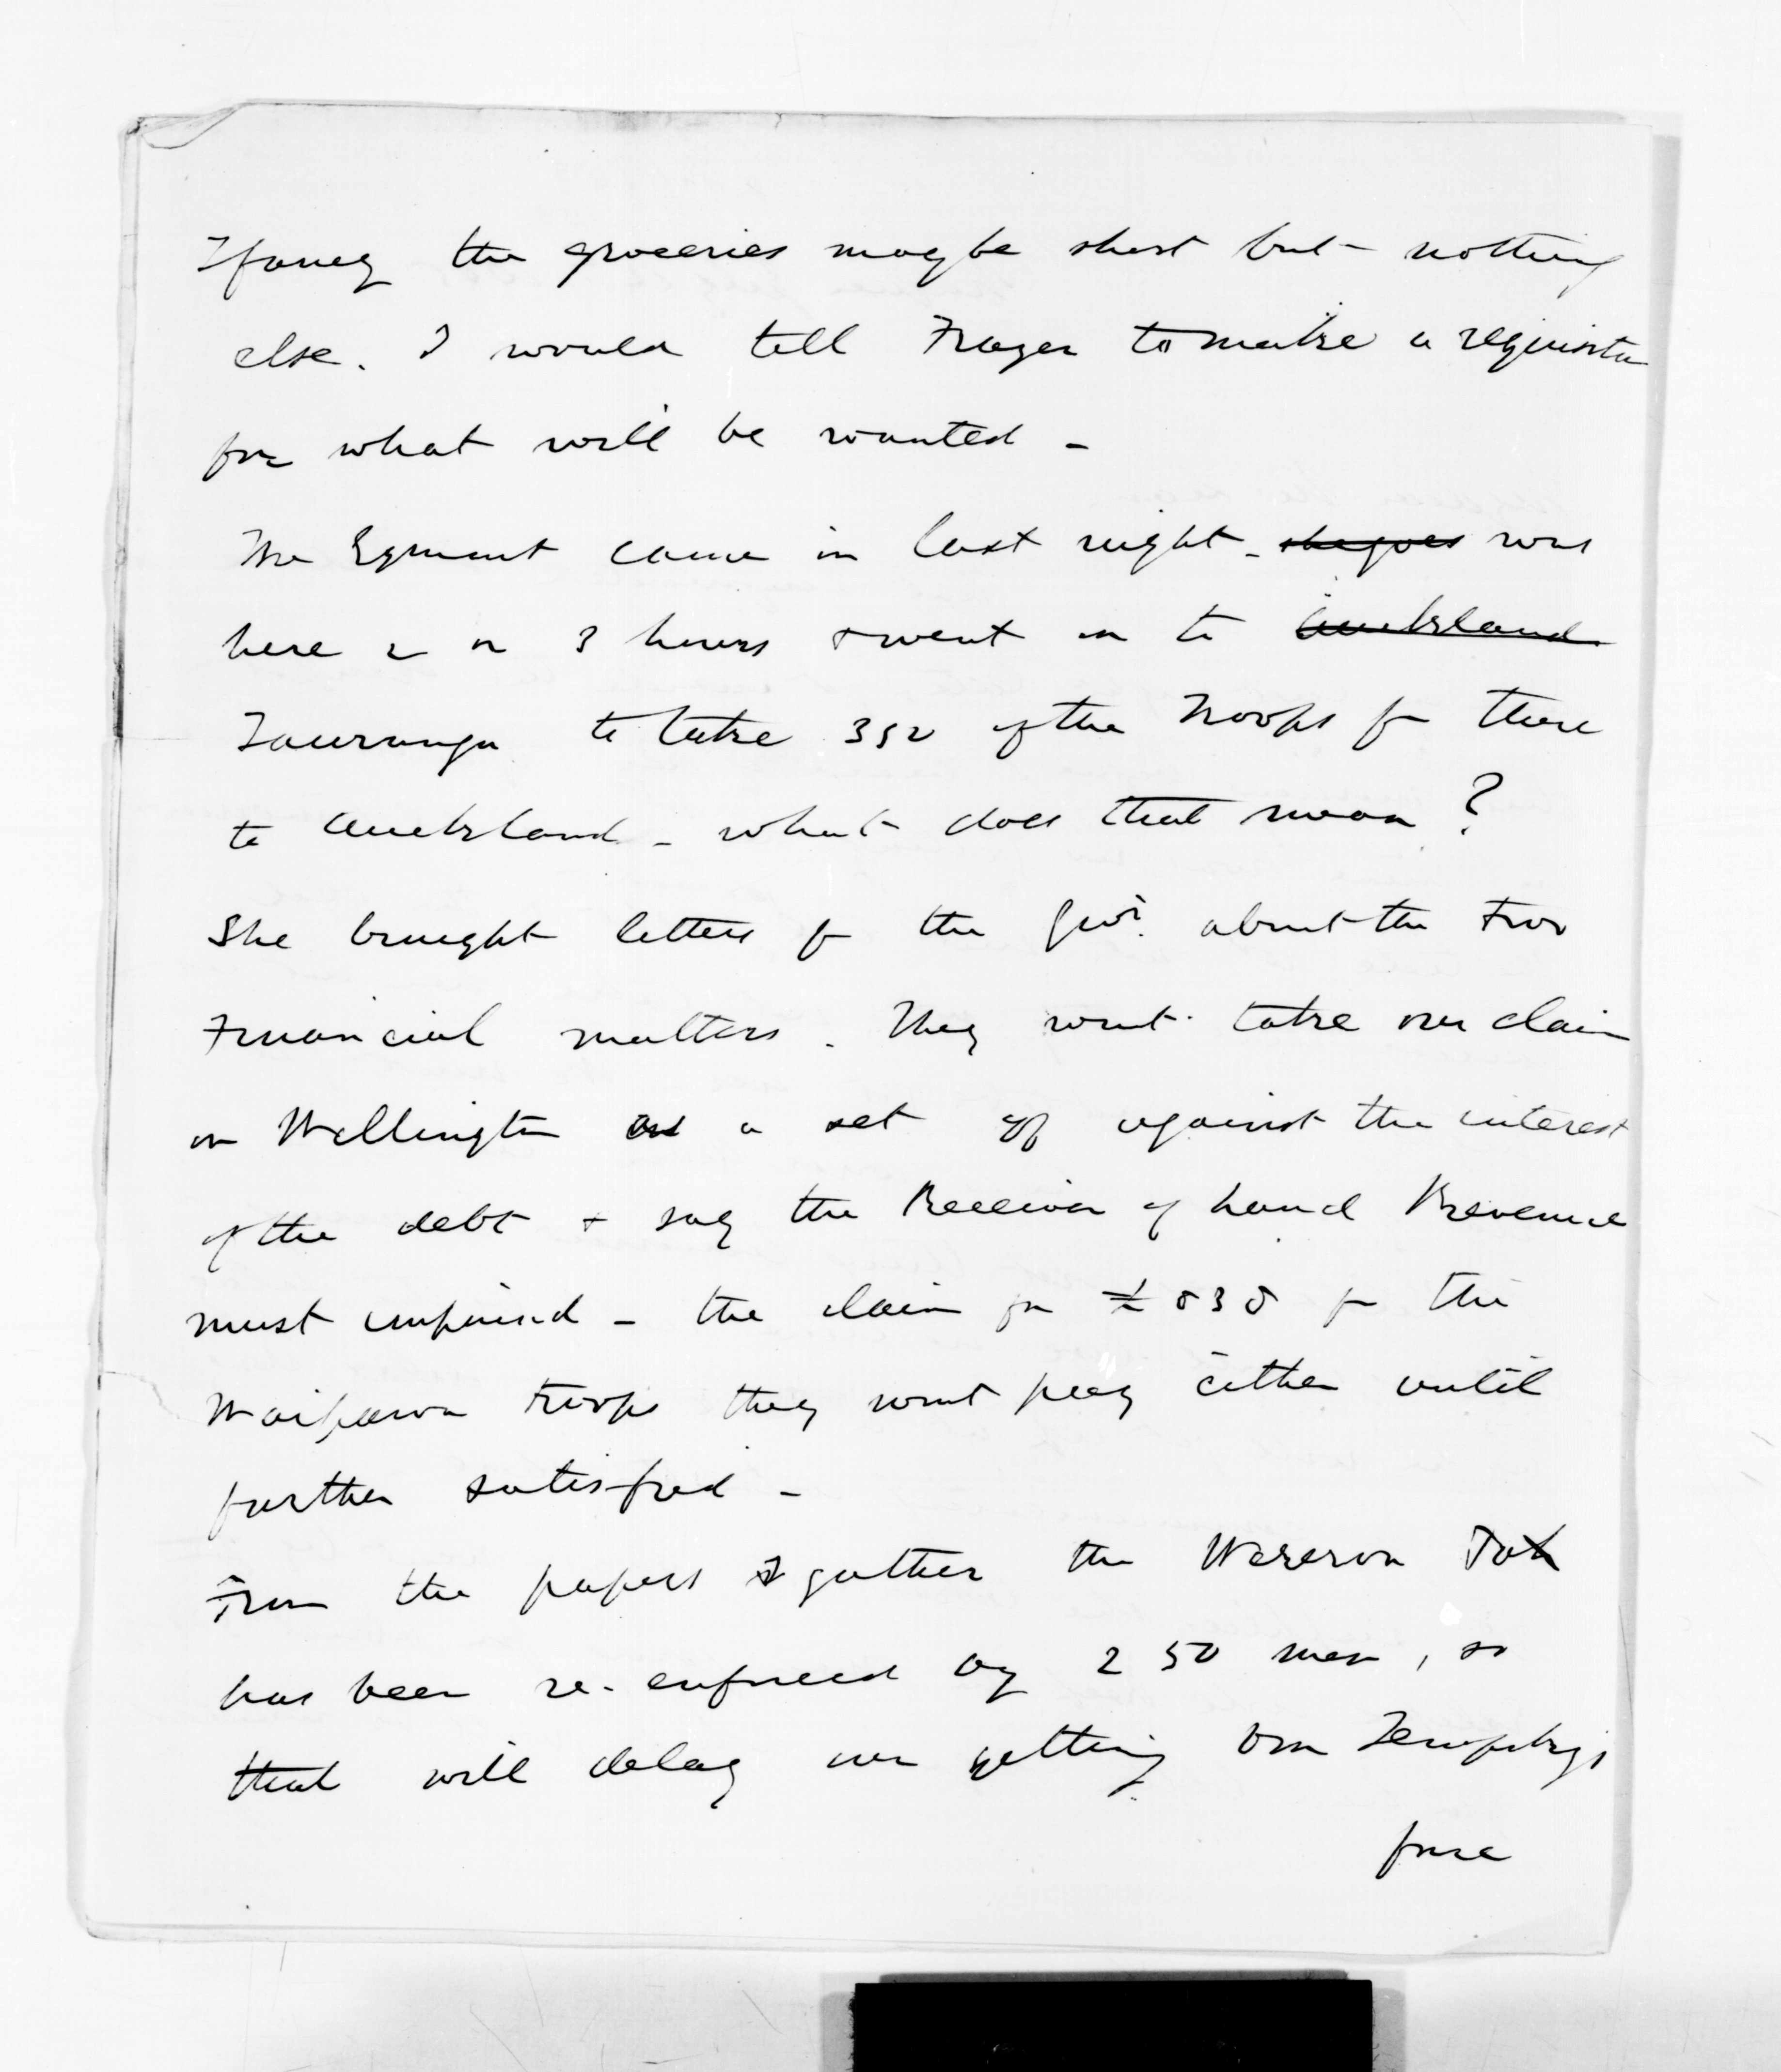 I fancy the groceries may be short but nothing
else. I would tell Frazer to make a requisitn
for what will be wanted -
The Egmont came in last night - she goes was
here 2 or 3 hours & went on to Auckland
Tauranga to take 350 of the Troops fm there
to Auckland - what does that mean ?
She brought letters fm the Govt. about the two
Financial matters. They wont take our claim
on Wellington as a set off against the interest
of the debt & say the Receiver of Land Revenue
must impound - the claim for £ 838 for the
Waipawa troops they wont pay either until
further satisfied -
From the papers I gather the Wereroa Pah
has been re-enforced by 250 men, so
that will delay our getting
force